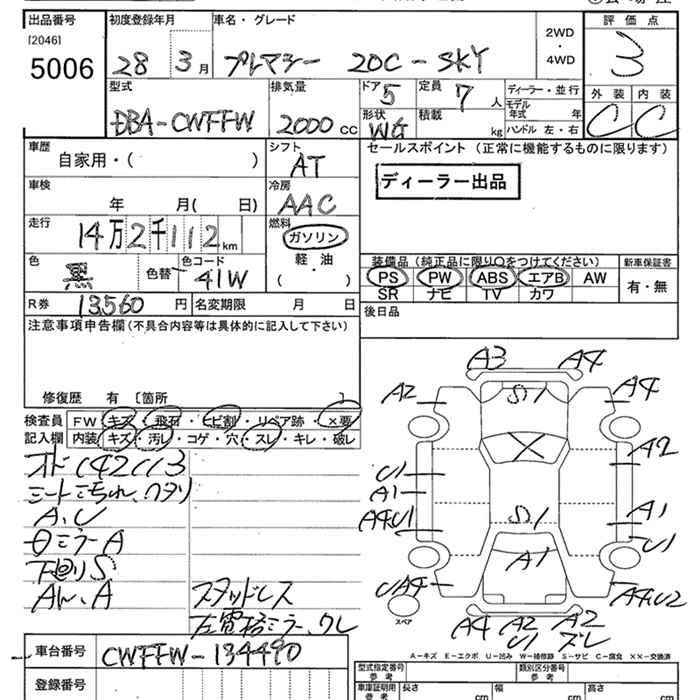 出品番号
[2046]
5006
初度登録年月
28 3月
車名・グレード
プレマシー 20C-SKY
2WD
・
4WD
評価点
3
型式
DBA-CWFFW
排気量
2000 cc
ドア 5
定員 7 人
ディーラー・並行
モデル
年式 年
ハンドル 左・右
形状 WG
積載 kg
外装 内装
C C
車歴
自家用・( )
シフト
AT
セールスポイント (正常に機能するものに限ります)
ディーラー出品
車検
年 月( 日)
冷房
AAC
走行
14万2千112km
燃料
ガソリン
軽・油
( )
色
黒 色替
色コード
41W
装備品 (純正品に限り○をつけてください)
新車保証書
PS PW ABS エアB AW
SR ナビ TV カワ
有・無
R券 13,560 円
名変期限 月 日
後日品
注意事項申告欄 (不具合内容等は具体的に記入して下さい)
修復歴 有 〔箇所 〕
検査員
記入欄
FW キズ・飛石・ヒビ割・リペア跡・×要
内装 キズ・汚レ・コゲ・穴・スレ・キレ・破レ
オド142113
シートヨゴれ、ヘタリ
A、U
下廻りS
スタッドレス
左電格ミラー、クレ
A3 A4
A2 S1 A4
A2
U1
A1
A4U1 S1 A1
A1 U1
UA4 A4U2
スペア
A4 A2 A2
U1 ズレ
A-キズ E-エクボ U-凹み W-補修跡 S-サビ C-腐食 ××-交換済
車台番号 CWFFW-134490
登録番号
型式指定番号
参考
類別区分番号
参考
車庫証明用
参考
長さ cm 幅 cm 高さ cm